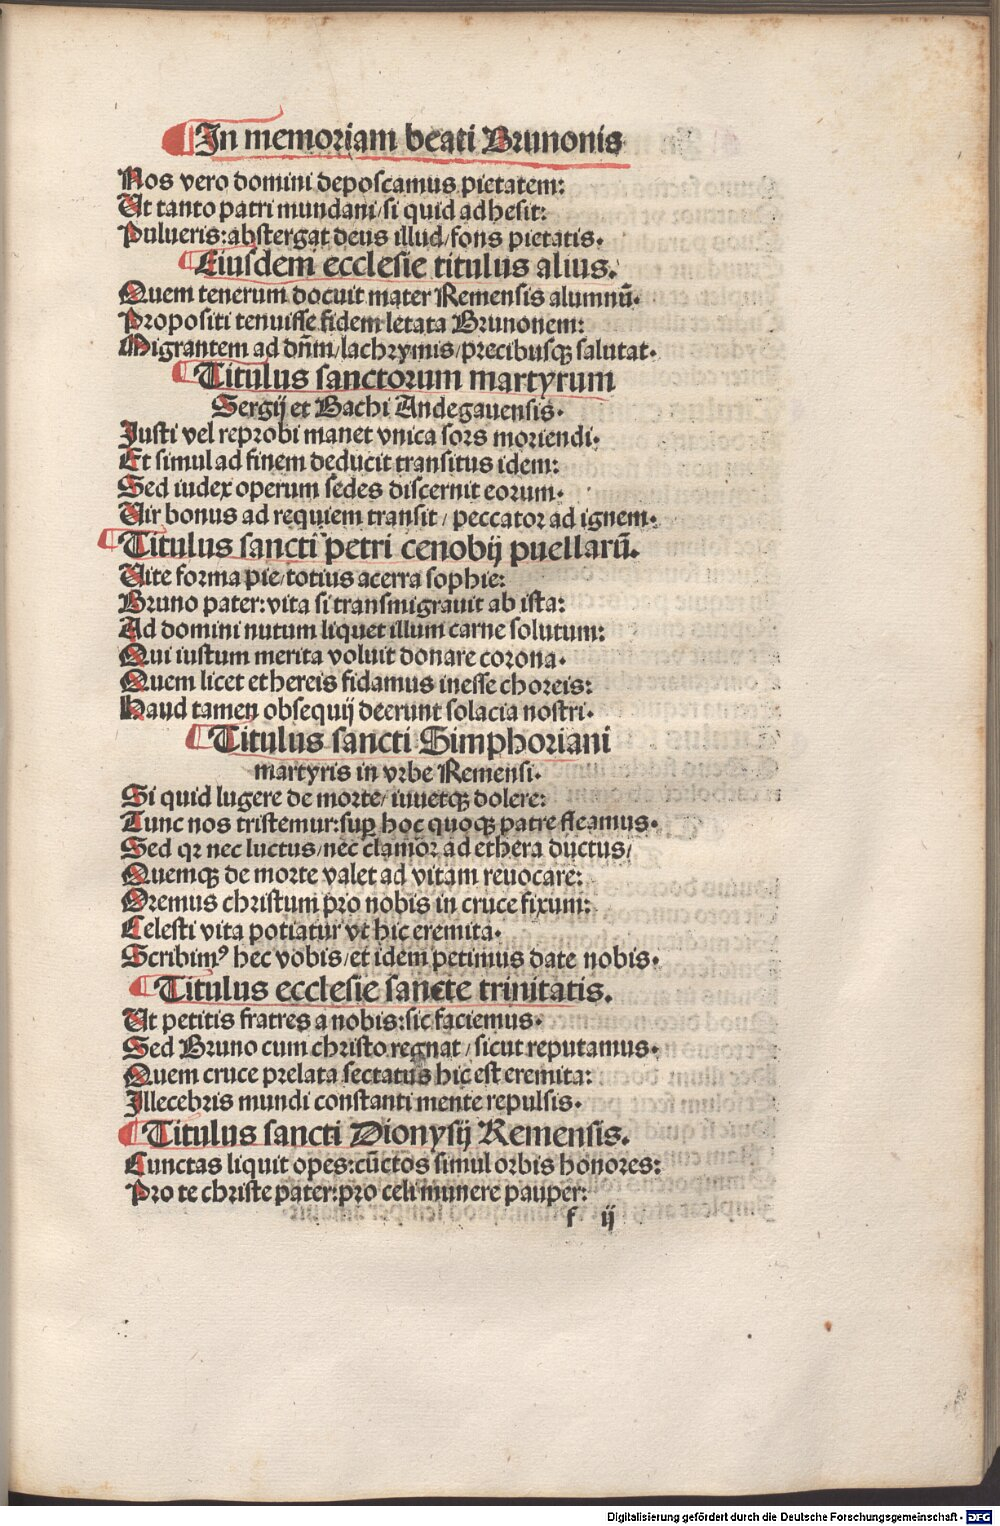 In memoriam beati Brunonis
Nos vero domini deposcamus pietatem:
Ut tanto patri mundani/si quid adhesit:
Pulueris:abstergat deus illud/fons pietatis.
Eiusdem ecclesie titulus alius.
Quem tenerum docuit mater Remensis alumnū.
Propositi tenuisse fidem letata Brunonem:
Migrantem ad dn̄m/lachrymis/precibusqꝫ salutat.
Titulus sanctorum martyrum
Sergij et Bachi Andegauensis.
Justi vel reprobi manet vnica sors moriendi.
Et simul ad finem deducit transitus idem:
Sed iudex operum sedes discernit eorum.
Uir bonus ad requiem transit/peccator ad ignem.
Titulus sancti petri cenobij puellarū.
Uite forma pie/totius acerra sophie:
Bruno pater:vita si transmigrauit ab ista:
Ad domini nutum liquet illum carne solutum:
Qui iustum merita voluit donare corona.
Quem licet ethereis fidamus inesse choreis:
Haud tamen obsequij deerunt solacia nostri.
Titulus sancti Simphoriani
martyris in vrbe Remensi.
Si quid lugere de morte/iuuetqꝫ dolere:
Tunc nos tristemur:suꝑ hoc quoqꝫ patre fleamus.
Sed qꝛ nec luctus/nec clamor ad ethera ductus/
Quemqꝫ de morte valet ad vitam reuocare:
Oremus christum pro nobis in cruce fixum:
Celesti vita potiatur vt hic eremita.
Scribimꝰ hec vobis/et idem petimus date nobis.
Titulus ecclesie sancte trinitatis.
Ut petitis fratres a nobis:sic faciemus.
Sed Bruno cum christo regnat/sicut reputamus.
Quem cruce prelata sectatus hic est eremita:
Illecebris mundi constanti mente repulsis.
Titulus sancti Dionysij Remensis.
Cunctas liquit opes:cūctos simul orbis honores:
Pro te christe pater:pro celi munere pauper:
f ij
Digitalisierung gefördert durch die Deutsche Forschungsgemeinschaft - DFG